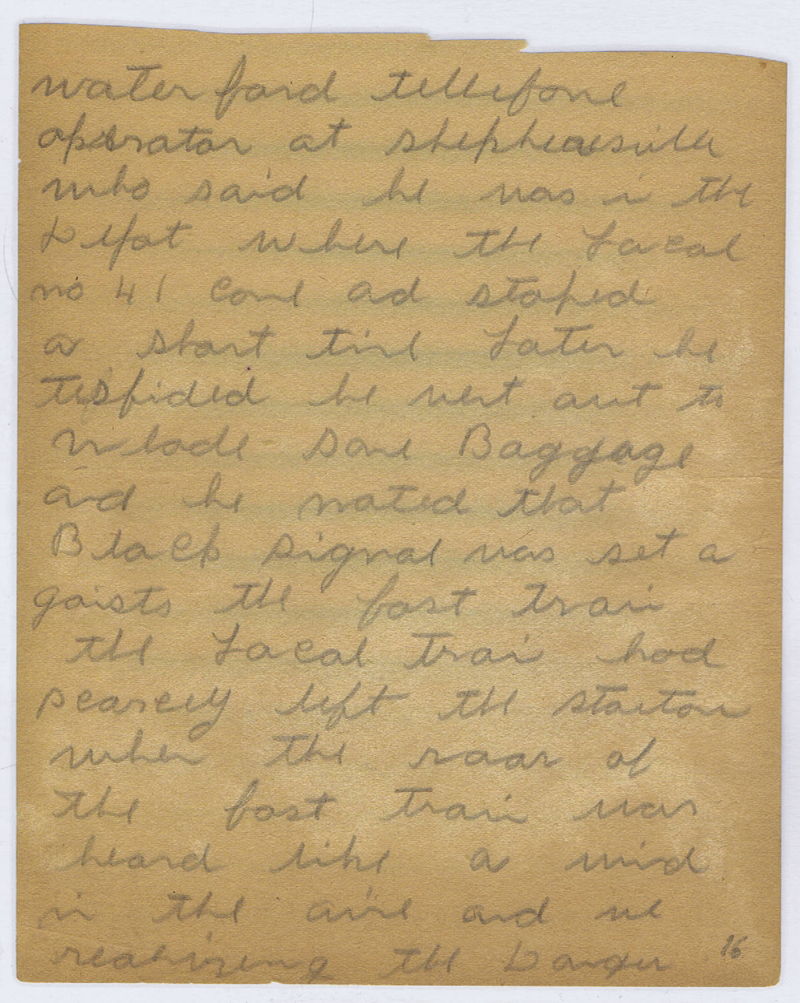 waterford tellefone
operator at shepherdsville
who said he was in the
Depot where the Local
no 41 come and stoped
a short time Later he
tesfided he went out to
unlode some Baggage
and he noted that
Block signal was set a
gaists the fast train
the Local train had
scarcely left the station
when the roar of
the fast train was
heard like a wind
in the aire and we
realizeing the Danger
16